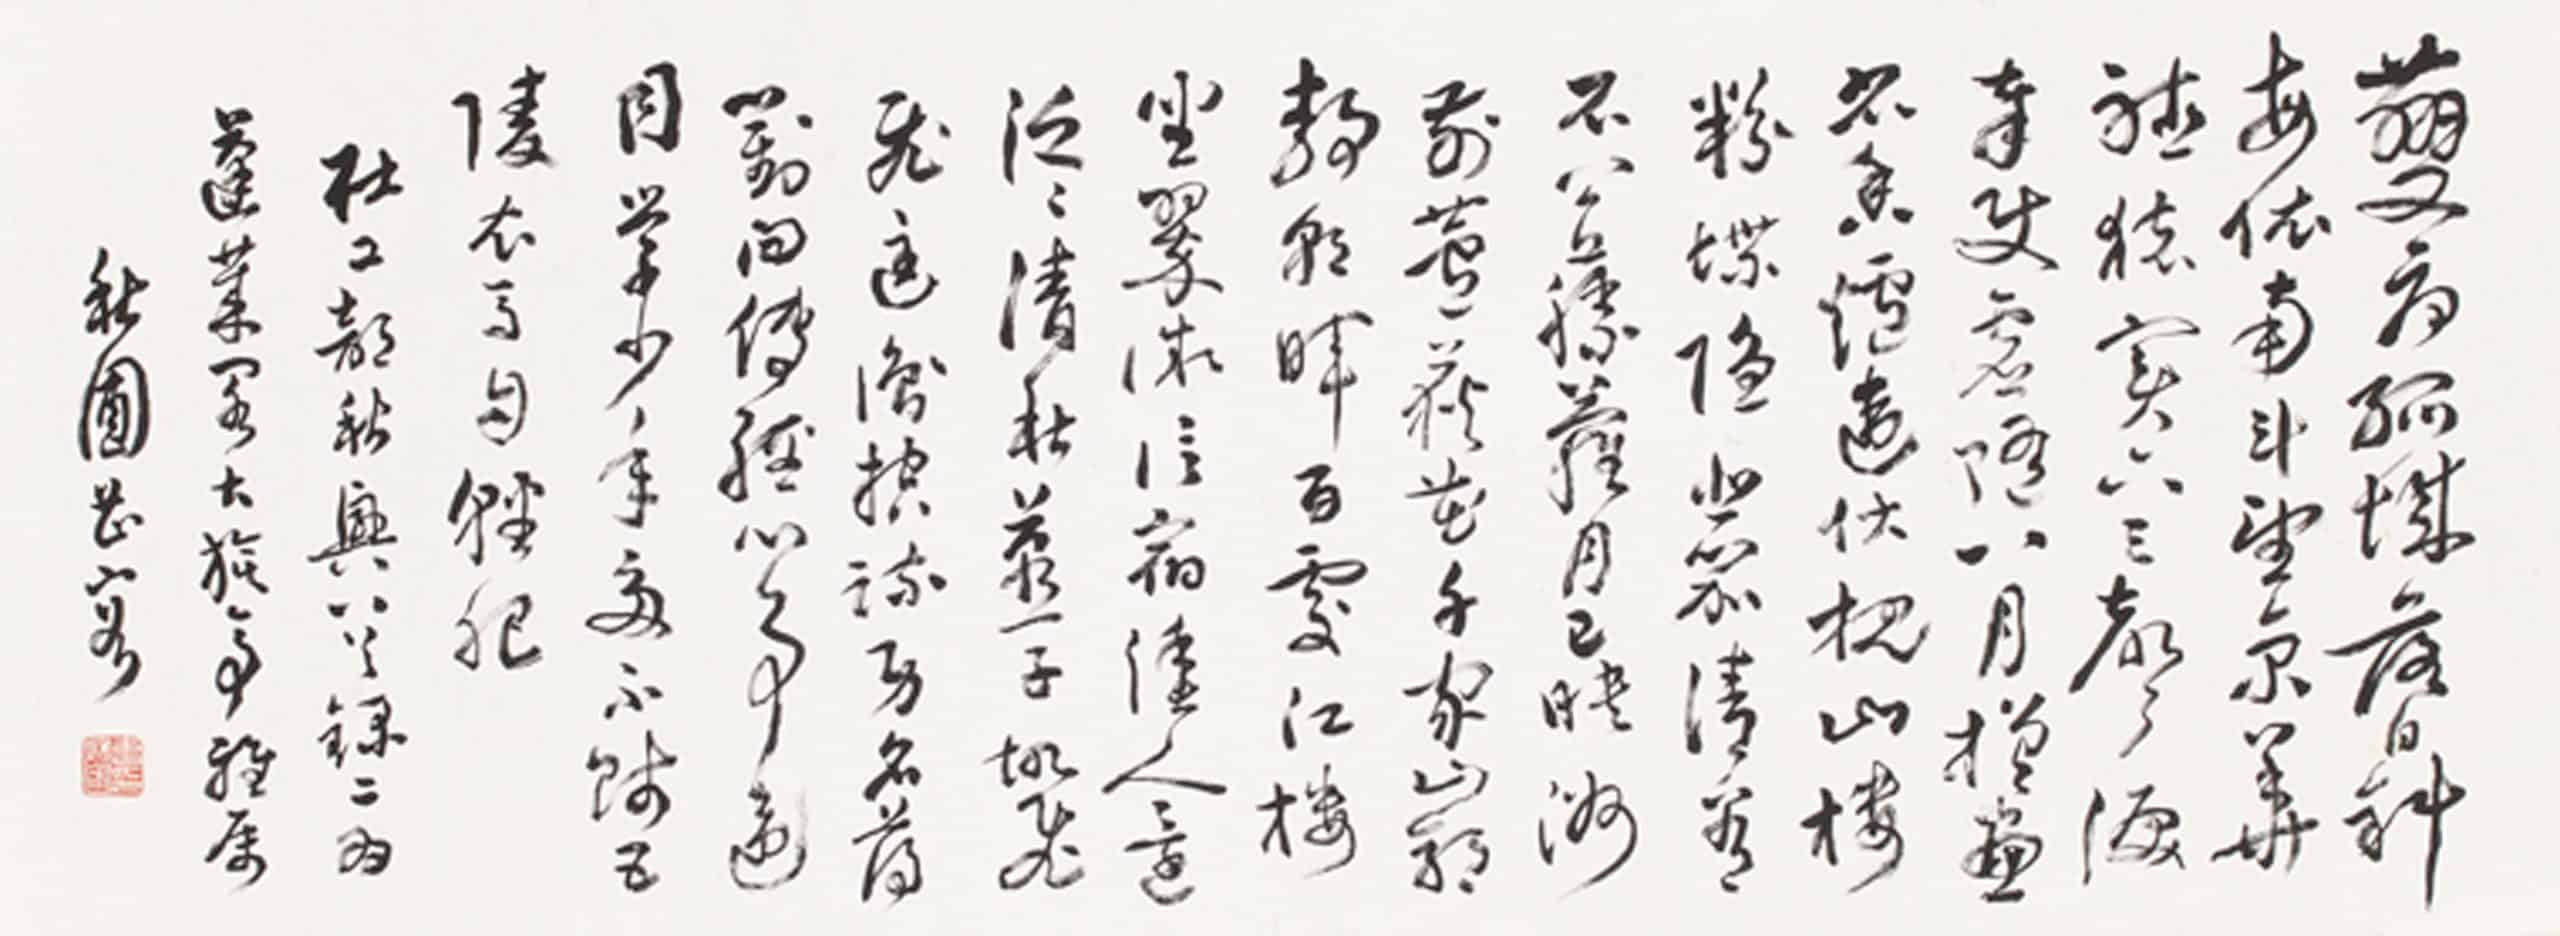 夔府孤城落日斜
每依南斗望京華
聽猿實下三聲淚
奉使虛隨八月槎畫
省香爐違伏枕山樓
粉堞隱悲笳請看
石上藤蘿月已映洲
前蘆荻花千家山郭
靜朝暉百處江樓
坐翠微信宿漁人還
泛々清秋燕子故飛
飛匡衡抗疏功名薄
劉向傳經心事違
同學少年多不賤五
陵衣馬自輕肥
杜工部秋興八之錄二為
蓬萊閣大雅屬
秋園